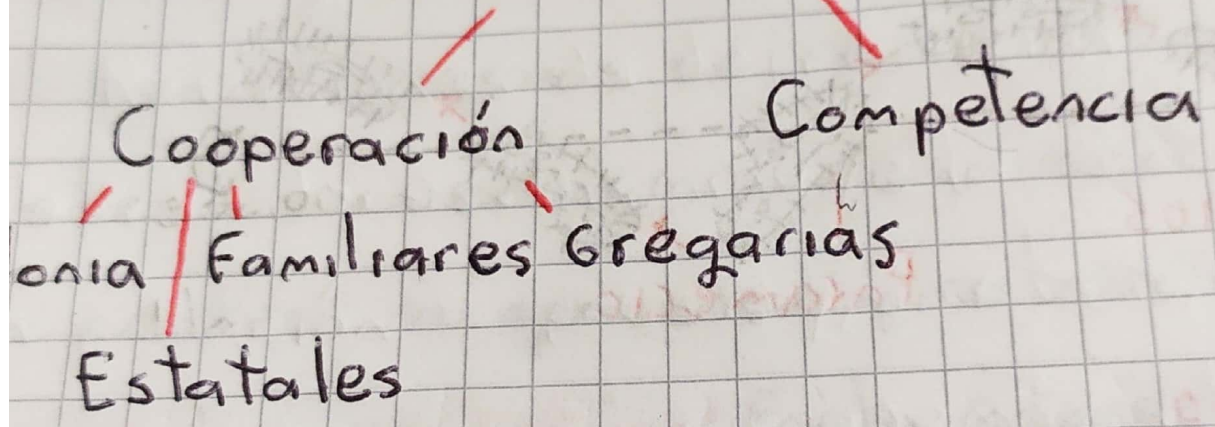 Cooperación Competencia
onia Familiares Gregarias
Estatales